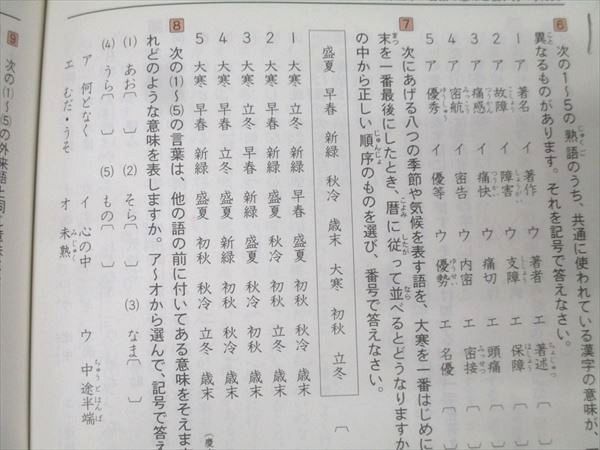 6 次の1〜5の熟語のうち、共通に使われている漢字の意味が、一
異なるものがあります。それを記号で答えなさい。
1 ア 著名 イ 著作 ウ 著者 エ 著述 〔 〕
2 ア 故障 イ 障害 ウ 支障 エ 保障 〔 〕
3 ア 痛感 イ 痛快 ウ 痛切 エ 頭痛 〔 〕
4 ア 密航 イ 密告 ウ 内密 エ 密接 〔 〕
5 ア 優秀 イ 優等 ウ 優勢 エ 名優 〔 〕
7 次にあげる八つの季節や気候を表す語を、大寒を一番はじめに
末を一番最後にしたとき、暦に従って並べるとどうなりますか
の中から正しい順序のものを選び、番号で答えなさい。
盛夏 早春 新緑 秋冷 歳末 大寒 初秋 立冬
1 大寒 立冬 新緑 早春 盛夏 初秋 秋冷 歳末
2 大寒 早春 新緑 盛夏 秋冷 初秋 立冬 歳末
3 大寒 立冬 早春 新緑 盛夏 秋冷 初秋 歳末
4 大寒 早春 立冬 新緑 盛夏 初秋 秋冷 歳末
5 大寒 早春 新緑 盛夏 初秋 秋冷 立冬 歳末
8 次の(1)〜(5)の言葉は、他の語の前に付いてある意味をそえます
れどのような意味を表しますか。ア〜オから選んで、記号で答え
(1) あお〔 〕 (2) そら〔 〕 (3) なま〔 〕
(4) うら〔 〕 (5) もの〔 〕
ア 何となく イ 心の中 ウ 中途半端
エ むだ・うそ オ 未熟
9 次の(1)〜(5)の外来語と同じ意味